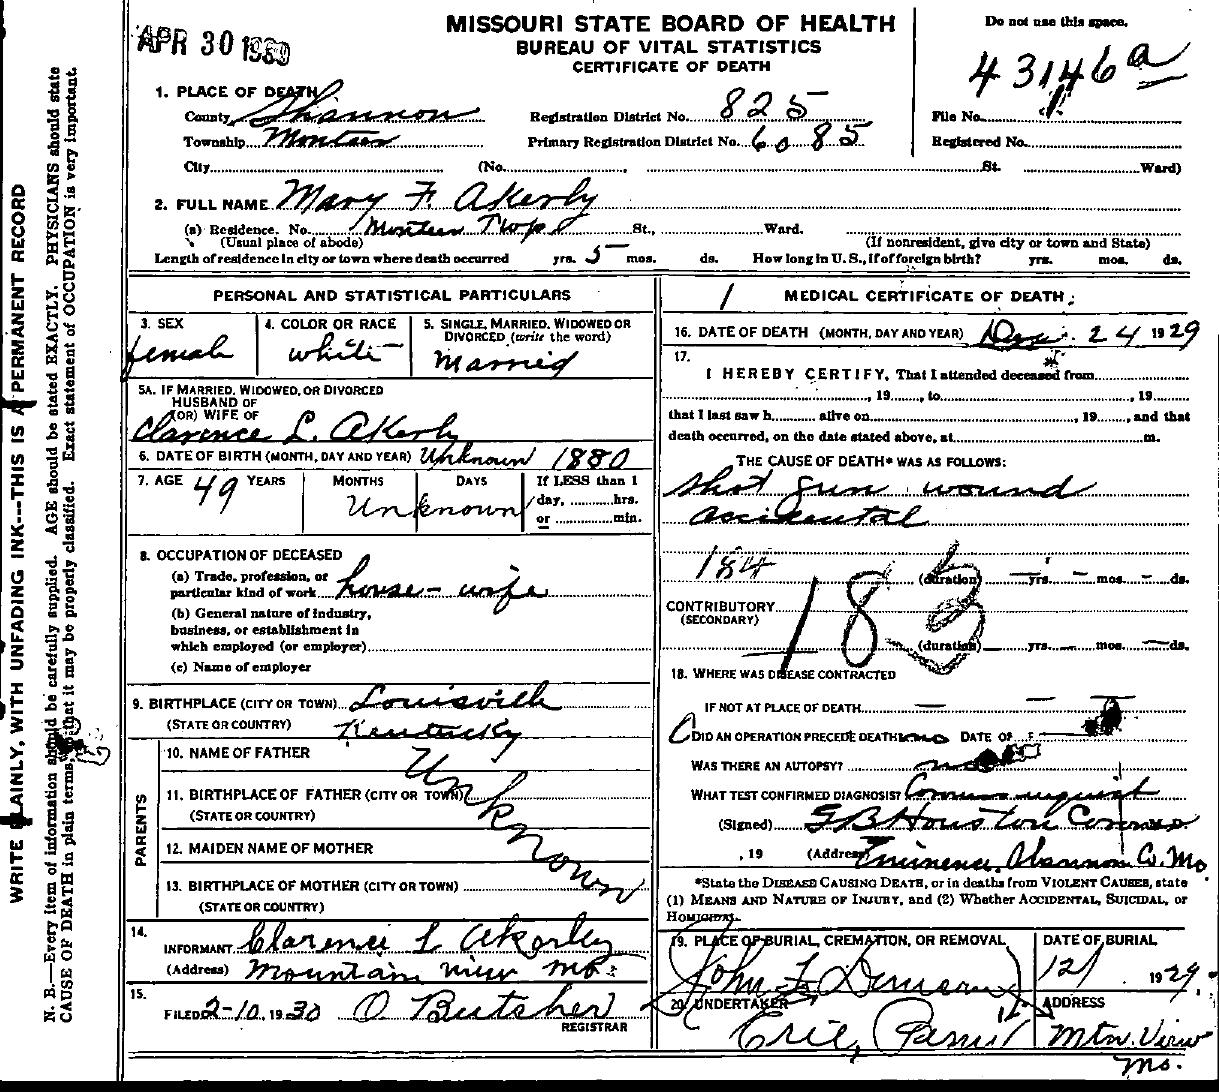 APR 30 1930
MISSOURI STATE BOARD OF HEALTH
BUREAU OF VITAL STATISTICS
CERTIFICATE OF DEATH
Do not use this space.
43146 a
1. PLACE OF DEATH
County Shannon
Registration District No. 825
File No.
Township Montier
Primary Registration District No. 6085
Registered No.
City (No. St. Ward)
2. FULL NAME Mary F. Akerly
(a) Residence. No. Montier Twp St., Ward.
(Usual place of abode) (If nonresident, give city or town and State)
Length of residence in city or town where death occurred yrs. 5 mos. ds. How long in U. S., if of foreign birth? yrs. mos. ds.
PERSONAL AND STATISTICAL PARTICULARS
3. SEX
female
4. COLOR OR RACE
white
5. SINGLE, MARRIED, WIDOWED OR DIVORCED (write the word)
Married
5A. IF MARRIED, WIDOWED, OR DIVORCED
HUSBAND OF
(OR) WIFE OF
Clarence L. Akerly
6. DATE OF BIRTH (MONTH, DAY AND YEAR) Unknown 1880
7. AGE 49 YEARS MONTHS DAYS
Unknown
If LESS than 1
day, hrs.
or min.
8. OCCUPATION OF DECEASED
(a) Trade, profession, or
particular kind of work house-wife
(b) General nature of industry,
business, or establishment in
which employed (or employer)
(c) Name of employer
9. BIRTHPLACE (CITY OR TOWN) Louisville
(STATE OR COUNTRY) Kentucky
PARENTS
10. NAME OF FATHER
11. BIRTHPLACE OF FATHER (CITY OR TOWN)
(STATE OR COUNTRY)
12. MAIDEN NAME OF MOTHER
13. BIRTHPLACE OF MOTHER (CITY OR TOWN)
(STATE OR COUNTRY)
Unknown
14.
INFORMANT Clarence L Akerley
(Address) Mountain View Mo.
15.
FILED 2-10, 1930 O Butsher
REGISTRAR
1 MEDICAL CERTIFICATE OF DEATH
16. DATE OF DEATH (MONTH, DAY AND YEAR) Dec. 24 1929
17.
I HEREBY CERTIFY, That I attended deceased from
, 19 , to , 19
that I last saw h alive on , 19 , and that
death occurred, on the date stated above, at m.
THE CAUSE OF DEATH* WAS AS FOLLOWS:
Shot gun wound
accidental
184
(duration) yrs. mos. ds.
CONTRIBUTORY
(SECONDARY)
183
(duration) yrs. mos. ds.
18. WHERE WAS DISEASE CONTRACTED
IF NOT AT PLACE OF DEATH
DID AN OPERATION PRECEDE DEATH? no DATE OF
WAS THERE AN AUTOPSY? no
WHAT TEST CONFIRMED DIAGNOSIS? Coroners inquist
(Signed) G B Houston Coroner
, 19 (Address) Eminence, Shannon Co. Mo
*State the DISEASE CAUSING DEATH, or in deaths from VIOLENT CAUSES, state
(1) MEANS AND NATURE OF INJURY, and (2) Whether ACCIDENTAL, SUICIDAL, or
HOMICIDAL.
19. PLACE OF BURIAL, CREMATION, OR REMOVAL
John F.
DATE OF BURIAL
12/ 1929
20. UNDERTAKER
ADDRESS
Mtn. View
Mo.
WRITE PLAINLY, WITH UNFADING INK---THIS IS A PERMANENT RECORD
N. B.—Every item of information should be carefully supplied. AGE should be stated EXACTLY. PHYSICIANS should state
CAUSE OF DEATH in plain terms, so that it may be properly classified. Exact statement of OCCUPATION is very important.